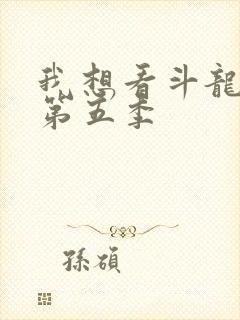 我想看斗龍
第五季
孫碩